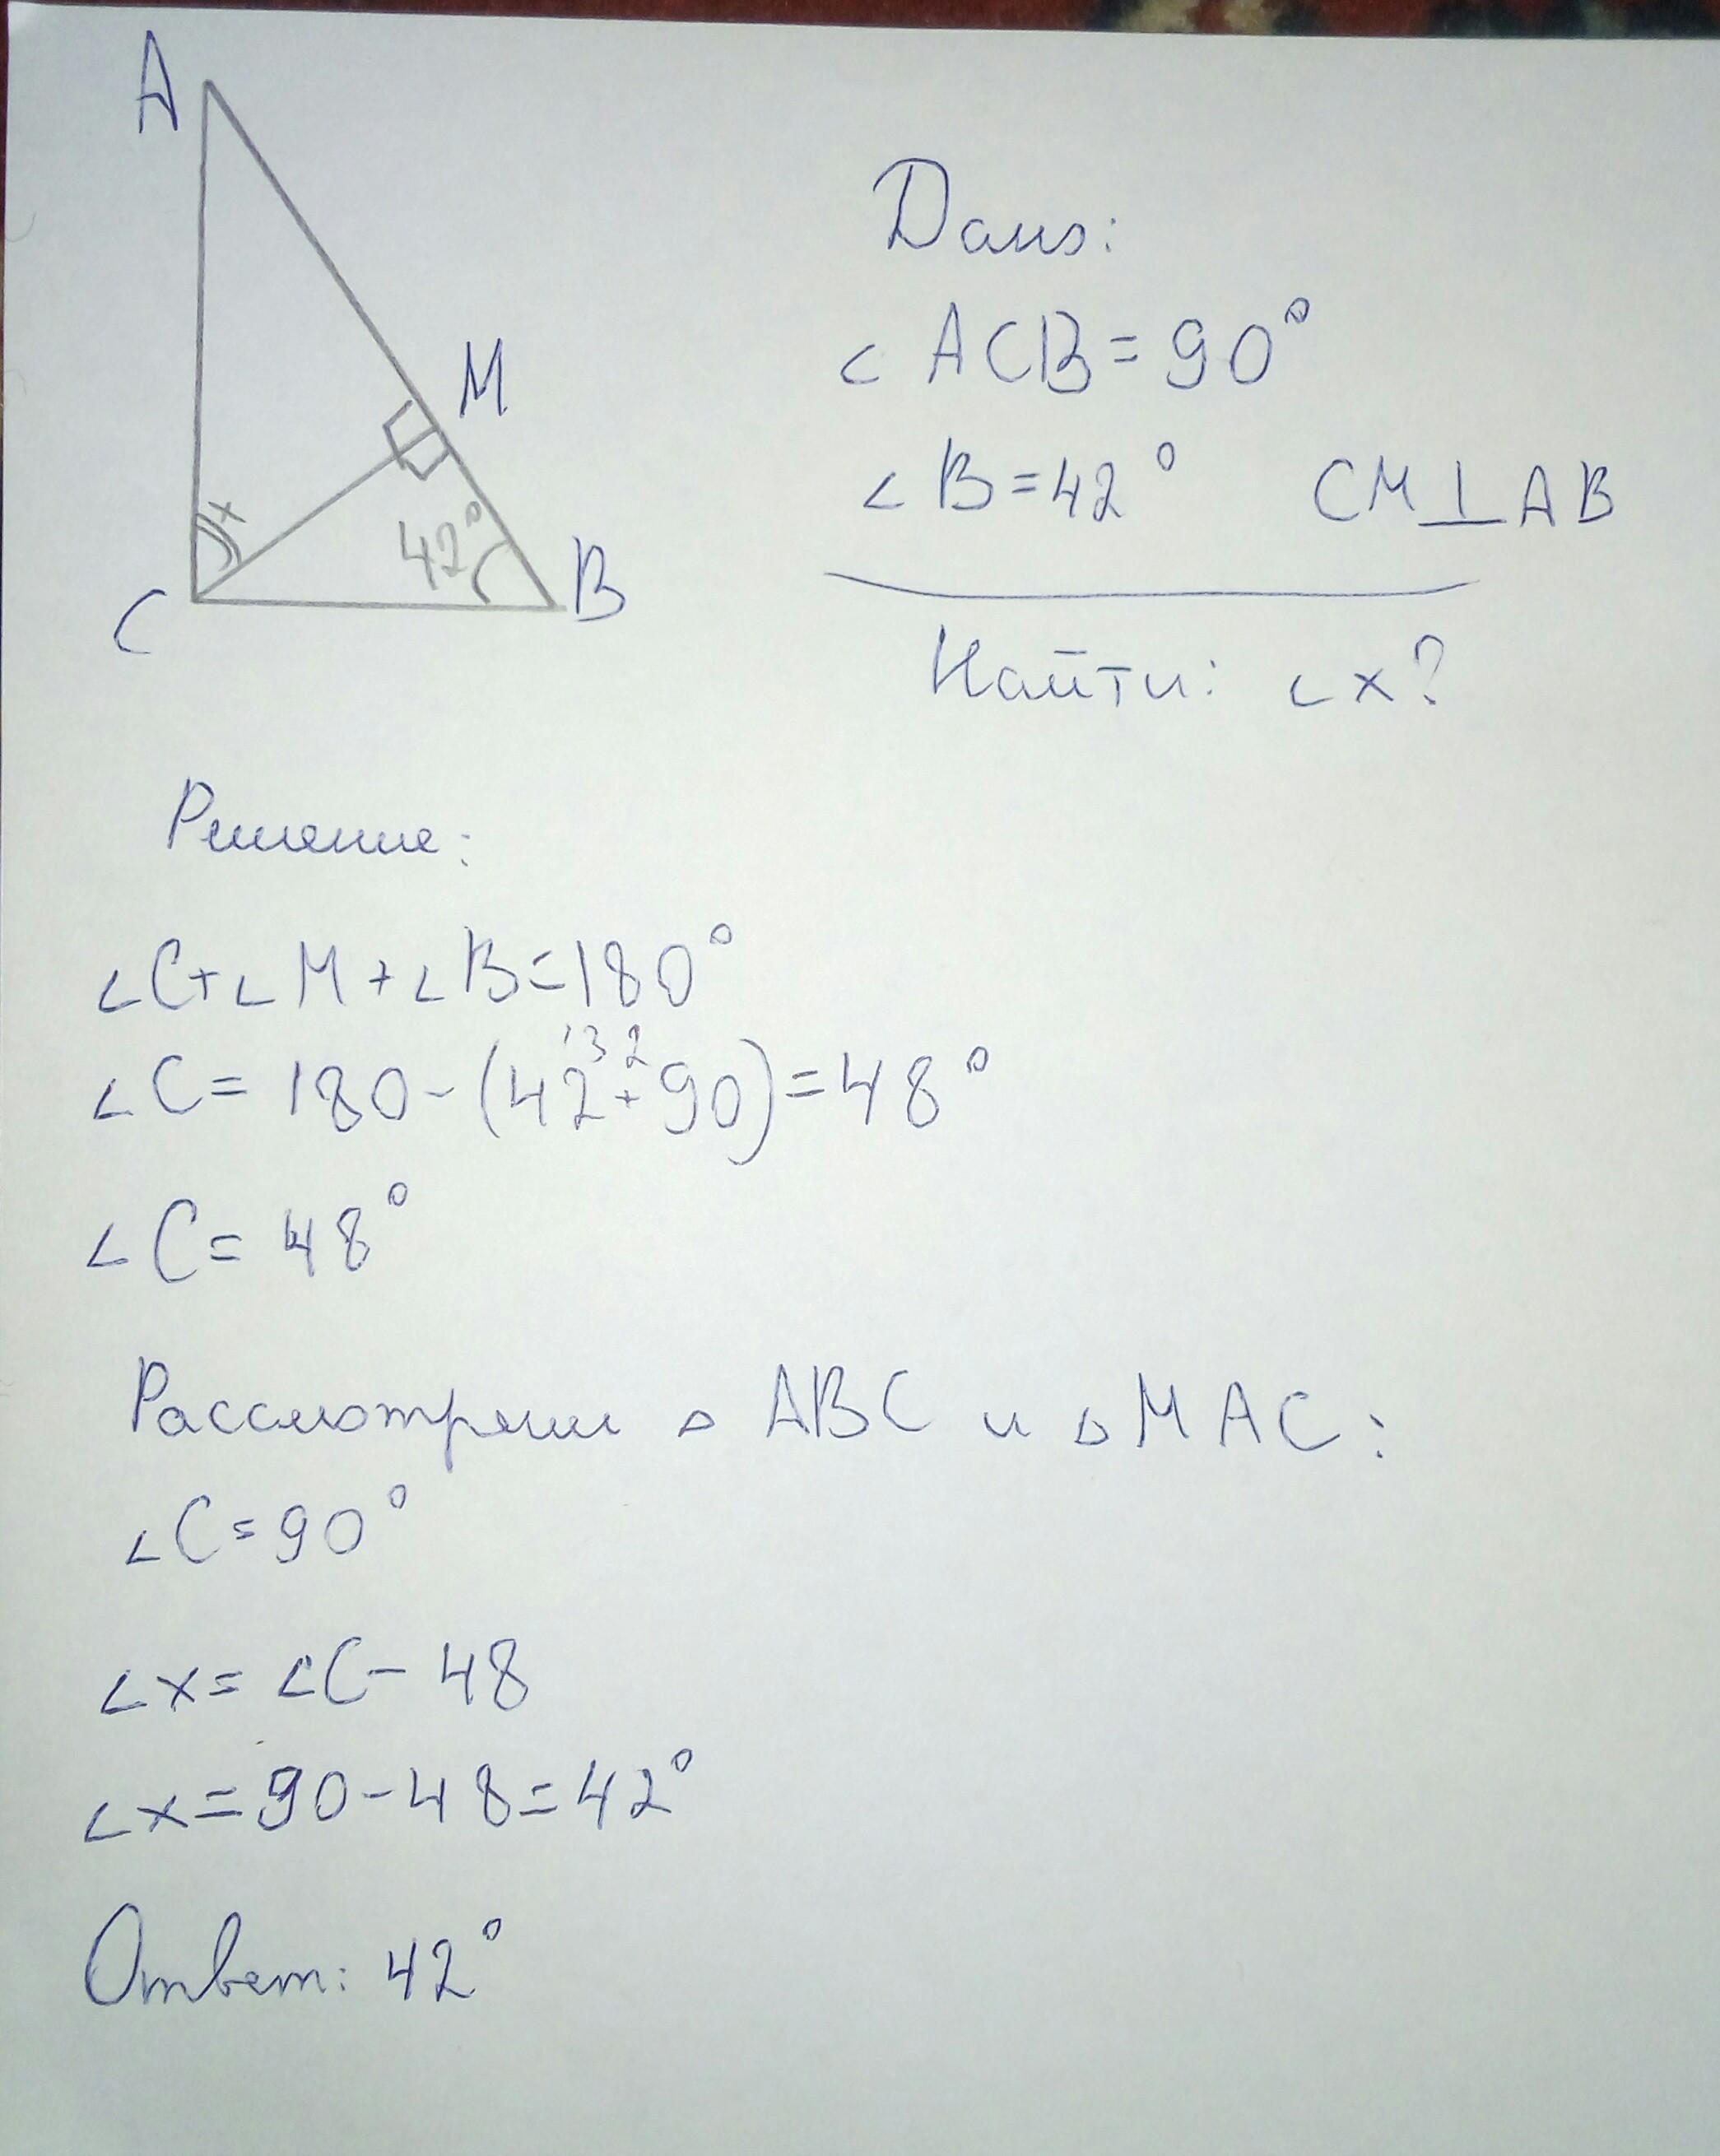 A
M
x
42°
C
B
Дано:
∠ ACB = 90°
∠ B = 42° CM ⊥ AB
Найти: ∠x?
Решение:
∠C + ∠M + ∠B = 180°
132
∠C = 180 - (42 + 90) = 48°
∠C = 48°
Рассмотрим △ ABC и △ MAC:
∠C = 90°
∠x = ∠C - 48
∠x = 90 - 48 = 42°
Ответ: 42°